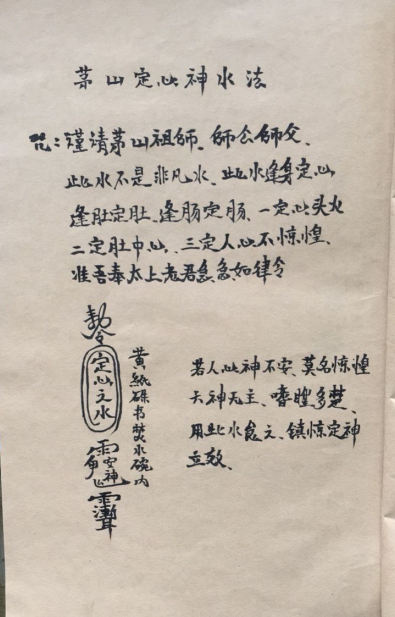 茅山定心神水法
咒：谨请茅山祖師、師公師父、
此水不是非凡水、此水逢身定心
逢肚定肚、逢肠定肠、一定心头火
二定肚中心、三定人心不惊惶、
准吾奉太上老君急急如律令
勅令
定心之水
安神
黄紙硃书焚水碗内
若人心神不安、莫名惊惶
六神无主、嗜睡多楚
用此水食之、镇惊定神
立效、